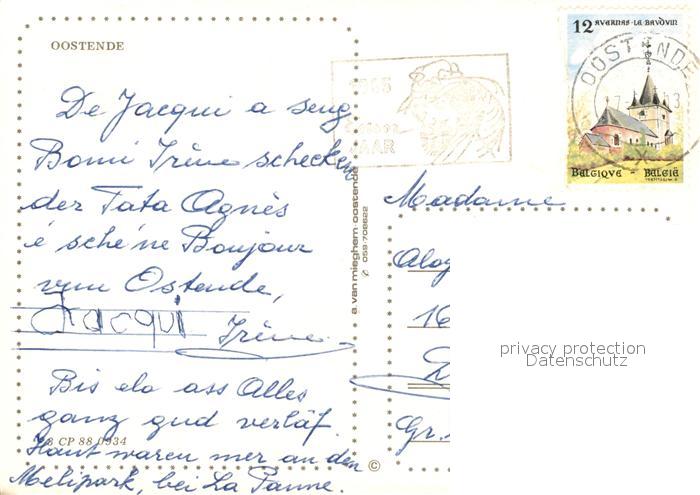 OOSTENDE
De Jacqui a seng
Bomi Irène schecken
der Tata Agnès
e schéne Boujour
vum Ostende,
Jacqui Irène
Bis elo ass Alles
ganz gud verläf.
Haut waren mer an den
Melipark, bei La Panne.
CP 88 0934
©
a. van mieghem · oostende
059-706622
1985
JAAR
12 AVERNAS-LE BAVDVIN
OOSTENDE
BELGIQVE - BELGIË
Madame
Aloy
16
Gr.
privacy protection
Datenschutz